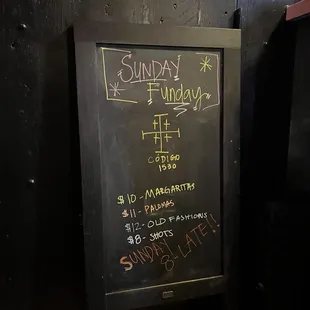 SUNDAY
Funday
CÓDIGO
1530
$10-MARGARITAS
$11-PALOMAS
$12-OLD FASHIONS
$8-SHOTS
SUNDAY
8-LATE!!